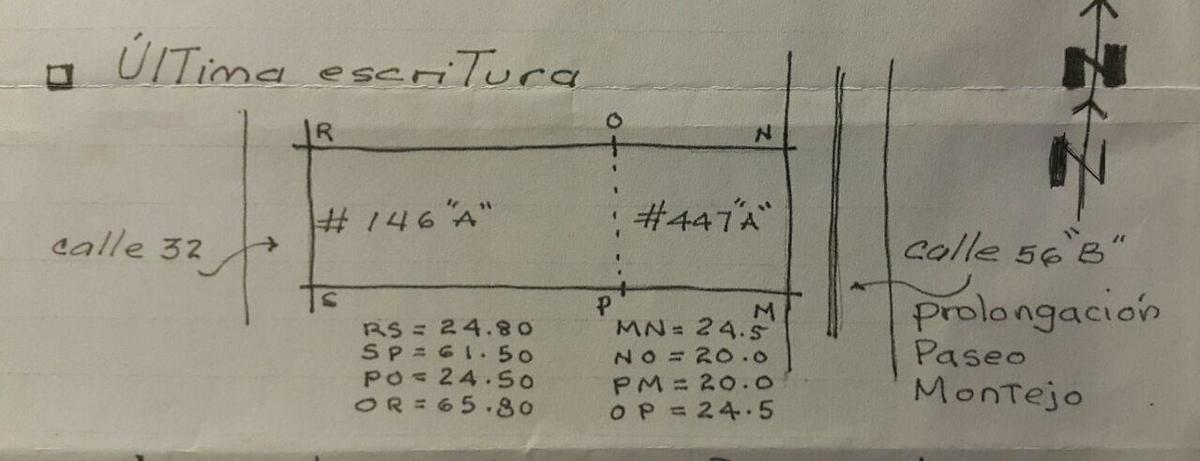 Última escritura
R O N
N
# 146 "A" #447 "A"
calle 32
calle 56 "B"
Prolongación
Paseo
Montejo
S P M
RS = 24.80
SP = 61.50
PO = 24.50
OR = 65.80
MN = 24.5
NO = 20.0
PM = 20.0
OP = 24.5